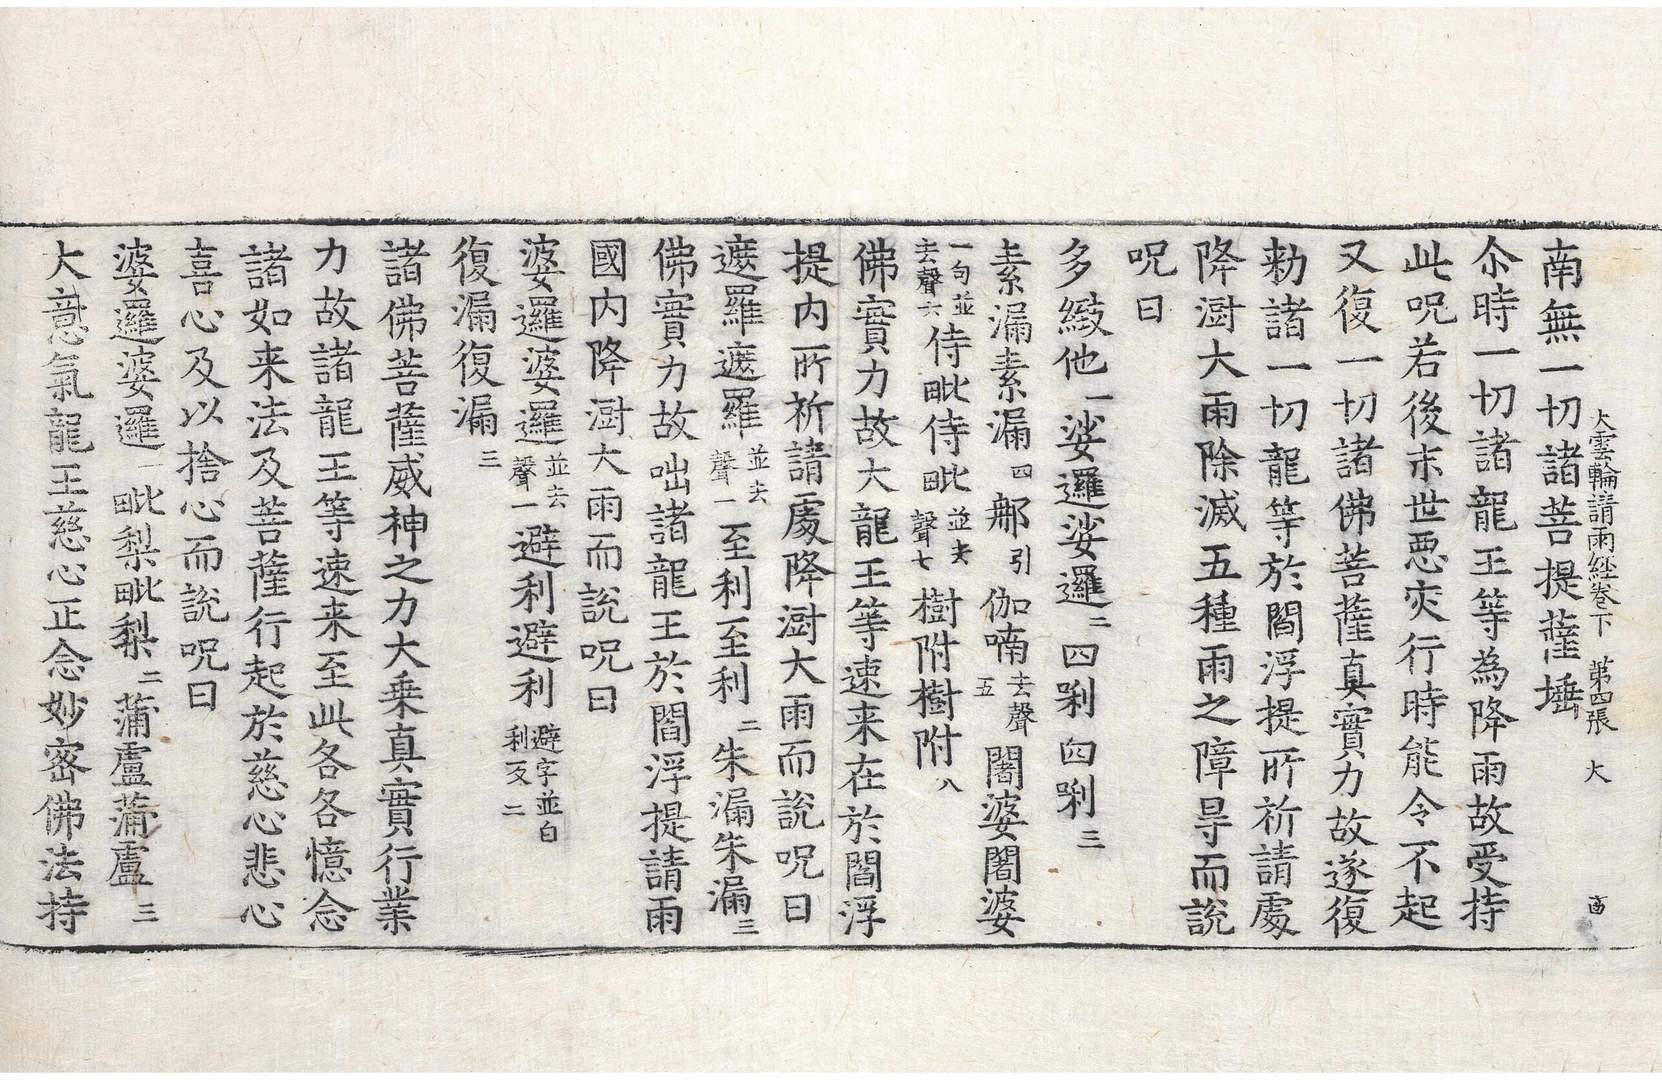 大雲輪請雨経卷下　第四張　大
南無一切諸菩提薩埵
尒時一切諸龍王等為降雨故受持
此呪若後末世悪灾行時能令不起
又復一切諸佛菩薩真實力故遂復
勑諸一切龍等於閻浮提所祈請處
降澍大雨除滅五種雨之障㝵而說
呪曰
多緻他一娑邏娑邏二四唎四唎三
素漏素漏四那引伽喃去聲五闍婆闍婆
一句並去聲六侍毗侍毗並去聲七樹附樹附八
佛實力故大龍王等速来在於閻浮
提内所祈請處降澍大雨而說呪曰
遮羅遮羅並去聲一至利至利二朱漏朱漏三
佛實力故咄諸龍王於閻浮提請雨
國内降澍大雨而說呪曰
婆邏婆邏並去聲一避利避利避字並白利反二
復漏復漏三
諸佛菩薩威神之力大乗真實行業
力故諸龍王等速来至此各各憶念
諸如来法及菩薩行起於慈心悲心
喜心及以捨心而說呪曰
婆邏婆邏一毗梨毗梨二蒲盧蒲盧三
大意氣龍王慈心正念妙密佛法持